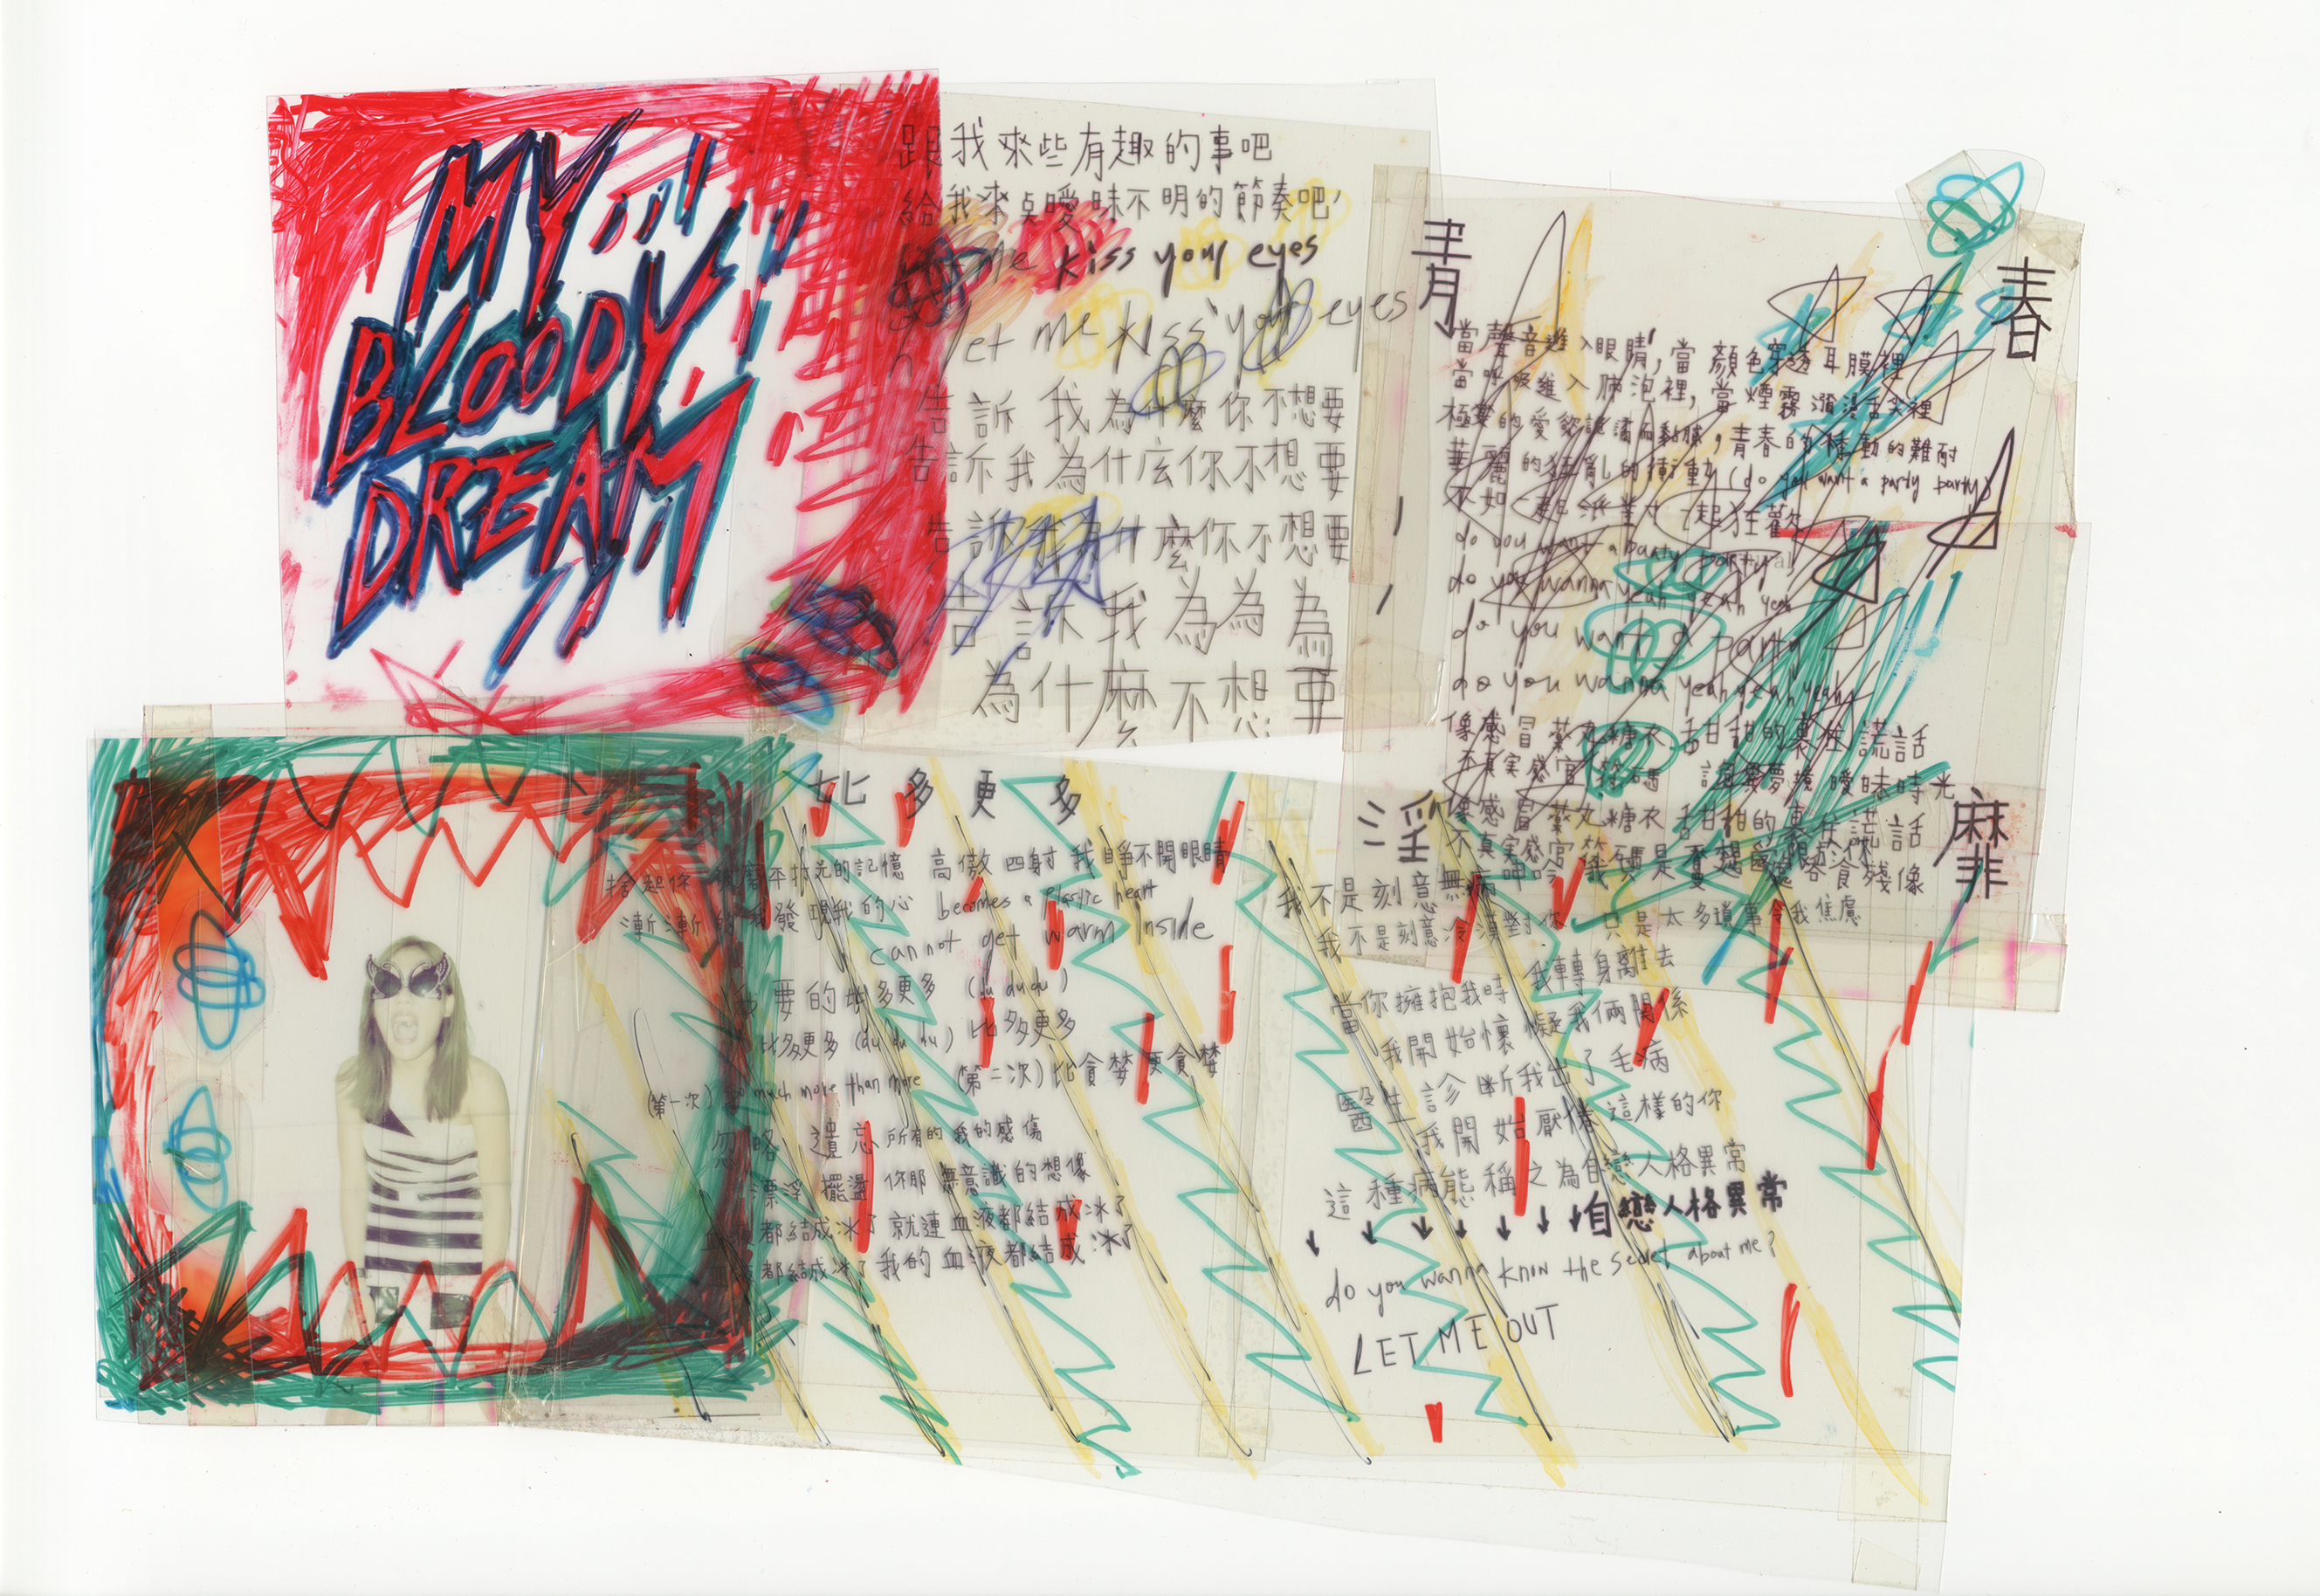 MY
BLOODY
DREAM
跟我來些有趣的事吧
給我來点曖昧不明的節奏吧
me kiss your eyes
let me kiss your eyes
告訴我為什麼你不想要
告訴我為什庅你不想要
告訴我為什麼你不想要
告訴我為為為
為什麼不想要
青春
淫靡
當聲音進入眼睛,當顏色穿透耳膜裡
當呼吸進入肺泡裡,當煙霧瀰漫舌尖裡
極樂的愛慾詭譎而黏膩,青春的悸動的難耐
華麗的狂亂的衝動(do you want a party party)
不如一起 一起狂歡
do you want a party party
do you wanna yeah yeah yeah
do you want a party
do you wanna yeah yeah yeah
像感冒藥丸糖衣 舌甘甜的裹住謊話
不真実感官 夢境 曖昧時光
像感冒藥丸糖衣 舌甘甜的裹住謊話
不真実感官
比多更多
捨起你 磨平拋光的記憶 高傲四射 我睜不開眼睛
漸漸的 我發現我的心 becomes a plastic heart
cannot get warm inside
我要的比多更多 (du du du)
比多更多 (du du du) 比多更多
(第一次) so much more than more (第二次) 比貪婪更貪婪
忽略 遺忘 所有的我的感傷
漂浮 擺盪 你那無意識的想像
血液都結成冰了 就連血液都結成冰了
血液都結成冰了 我的血液都結成冰了
我不是刻意無病呻吟
我不是刻意冷漠對你 只是太多瑣事令我焦慮
當你擁抱我時 我轉身離去
我開始懷疑我倆關係
醫生診斷我出了毛病
我開始厭倦這樣的你
這種病態稱之為自戀人格異常
↓ ↓ ↓ ↓ ↓ ↓ ↓自戀人格異常
do you wanna know the secret about me?
LET ME OUT